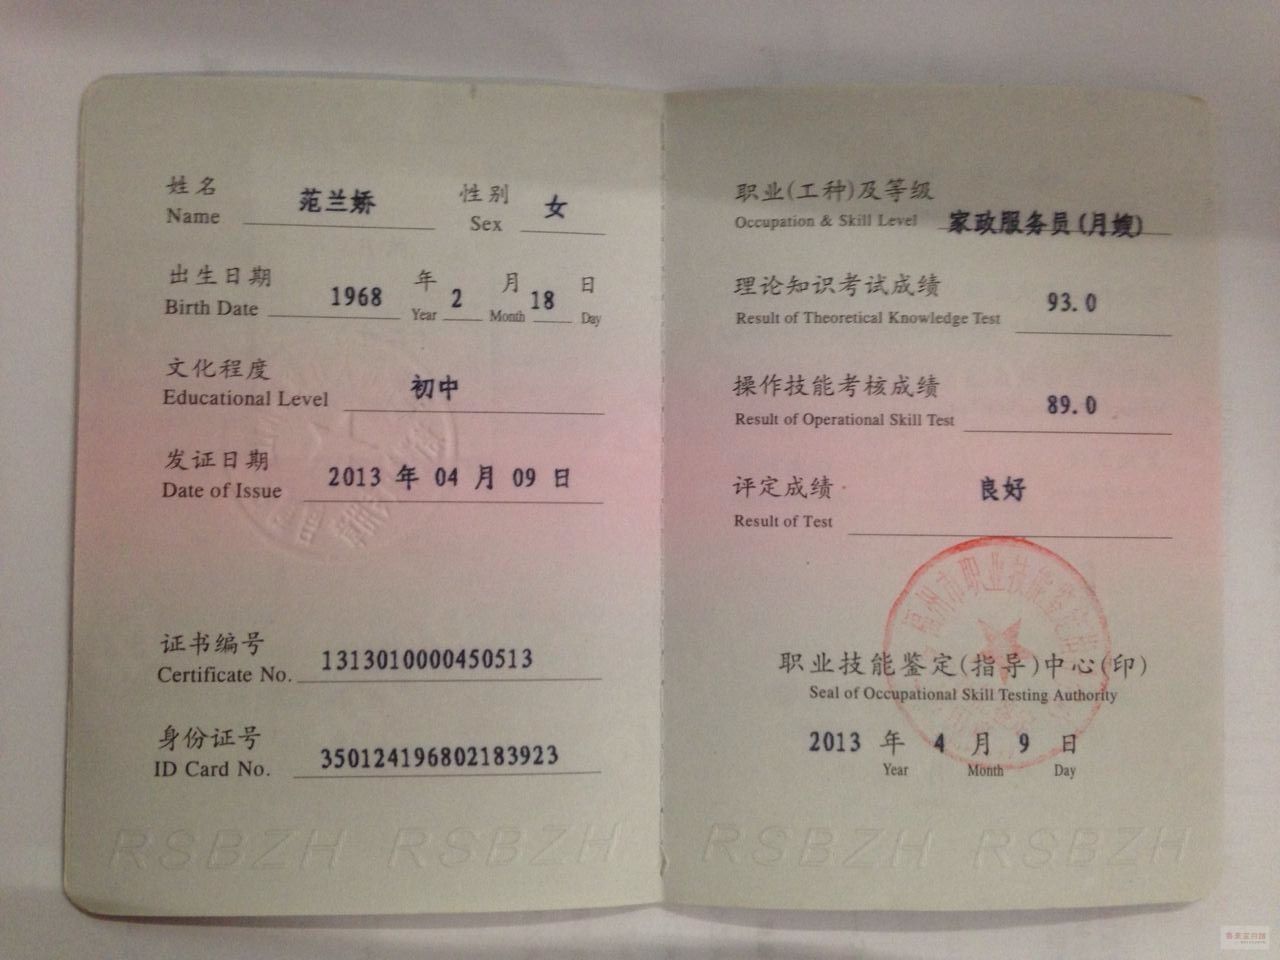 姓名 范兰娇 性别 女
Name Sex
出生日期 1968 年 2 月 18 日
Birth Date Year Month Day
文化程度 初中
Educational Level
发证日期 2013 年 04 月 09 日
Date of Issue
证书编号 1313010000450513
Certificate No.
身份证号 350124196802183923
ID Card No.
RSBZH RSBZH
职业(工种)及等级
Occupation & Skill Level 家政服务员(月嫂)
理论知识考试成绩 93.0
Result of Theoretical Knowledge Test
操作技能考核成绩 89.0
Result of Operational Skill Test
评定成绩 良好
Result of Test
福州市职业技能鉴定指
职业技能鉴定(指导)中心(印)
Seal of Occupational Skill Testing Authority
2013 年 4 月 9 日
Year Month Day
RSBZH RSBZH